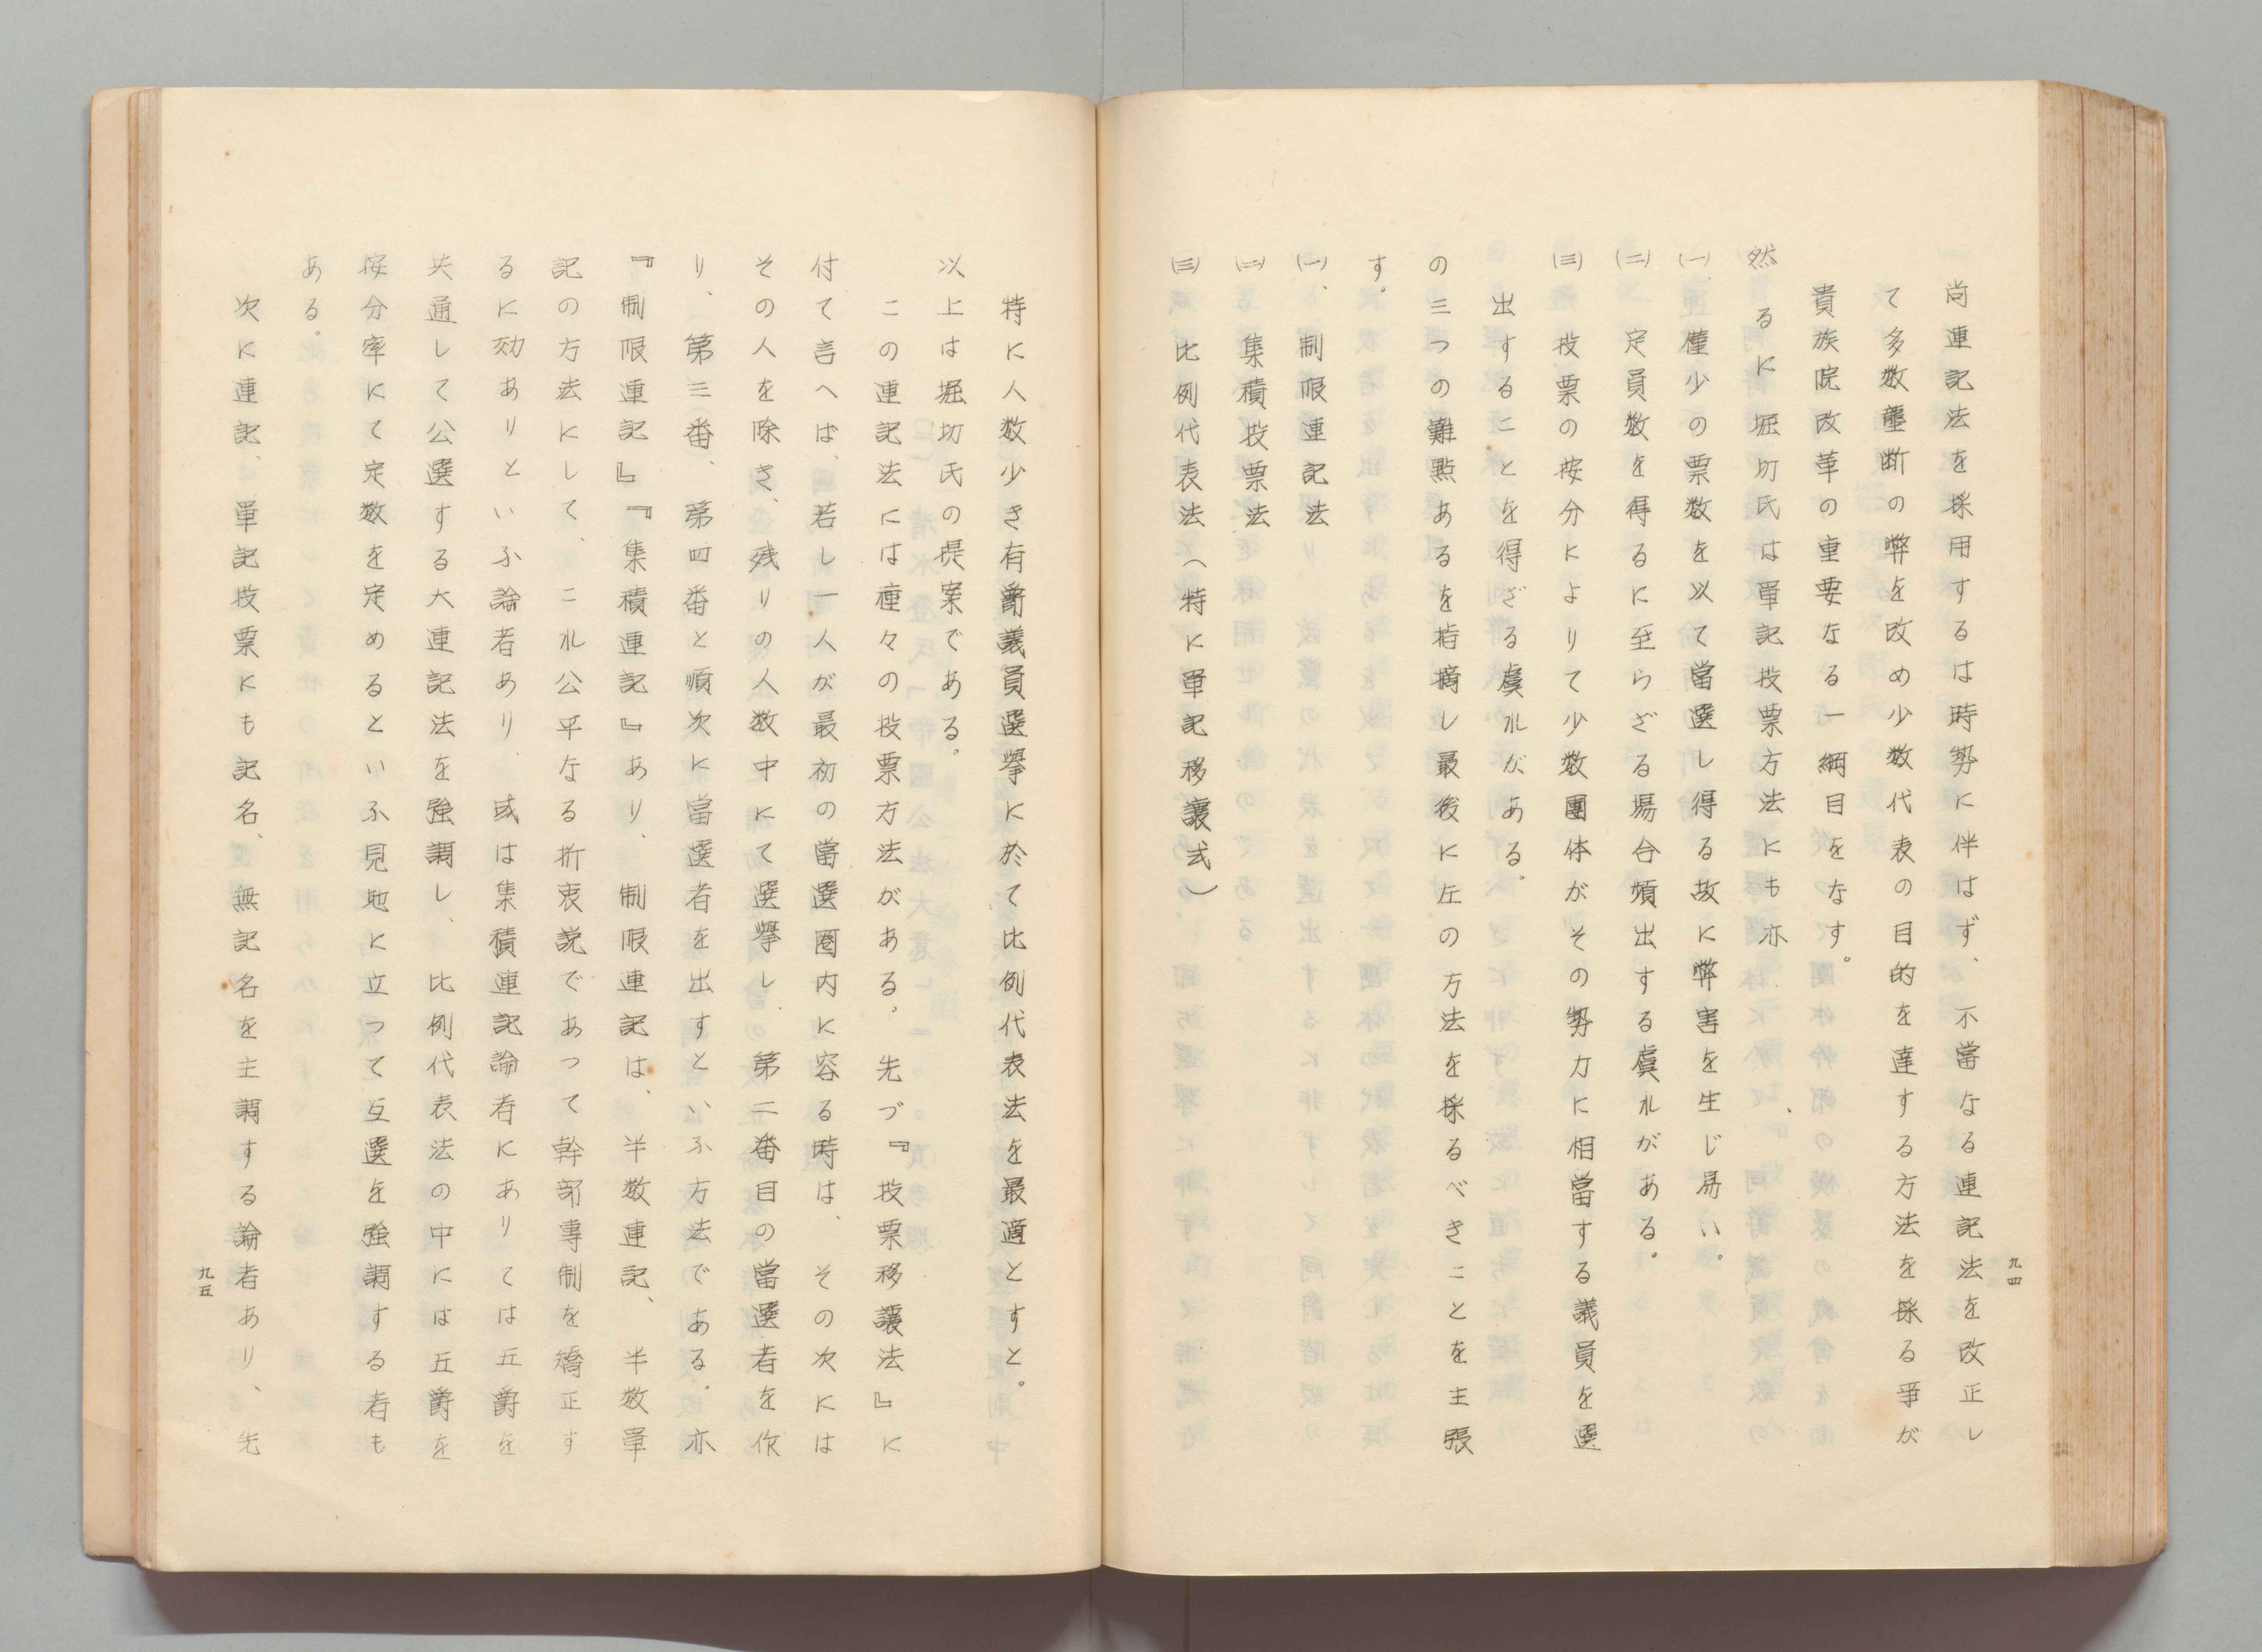 尚連記法を採用するは時勢に伴はず、不當なる連記法を改正し
て多数壟断の弊を改め少数代表の目的を達する方法を採る事が
貴族院改革の重要なる一綱目をなす。
然るに堀切氏は單記投票方法にも亦
(一)、僅少の票数を以て當選し得る故に弊害を生じ易い。
(二)　定員数を得るに至らざる場合頻出する虞れがある。
(三)　投票の按分によりて少数團体がその勢力に相當する議員を選
出することを得ざる虞れがある。
の三つの難點あるを指摘し最後に左の方法を採るべきことを主張
す。
(一)、制限連記法
(二)　集積投票法
(三)　比例代表法（特に單記移譲式）
九四
特に人数少き有爵議員選擧に於て比例代表法を最適とすと。
以上は堀切氏の提案である。
この連記法には種々の投票方法がある。先づ『投票移譲法』に
付て言へば、若し一人が最初の當選圏内に容る時は、その次には
その人を除き、残りの人数中にて選擧し、第二番目の當選者を作
り、第三番、第四番と順次に當選者を出すといふ方法である。亦
『制限連記』『集積連記』あり、制限連記は、半数連記、半数單
記の方法にして、これ公平なる折衷説であつて幹部專制を矯正す
るに効ありといふ論者あり、或は集積連記論者にありては五爵を
共通して公選する大連記法を強調し、比例代表法の中には五爵を
按分率にて定数を定めるといふ見地に立つて互選を強調する者も
ある。
次に連記、單記投票にも記名、無記名を主調する論者あり、先
九五